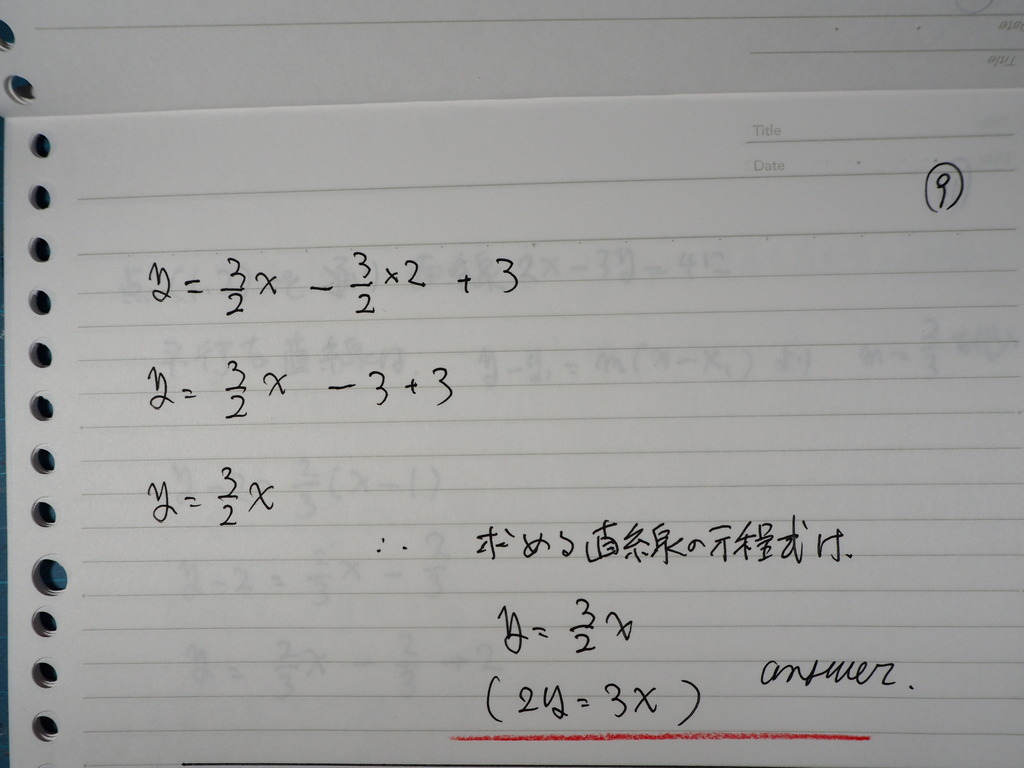 Title
Date
⑨
y = 3/2 x - 3/2 × 2 + 3
y = 3/2 x - 3 + 3
y = 3/2 x
∴ 求める直線の方程式は、
y = 3/2 x
(2y = 3x) answer.